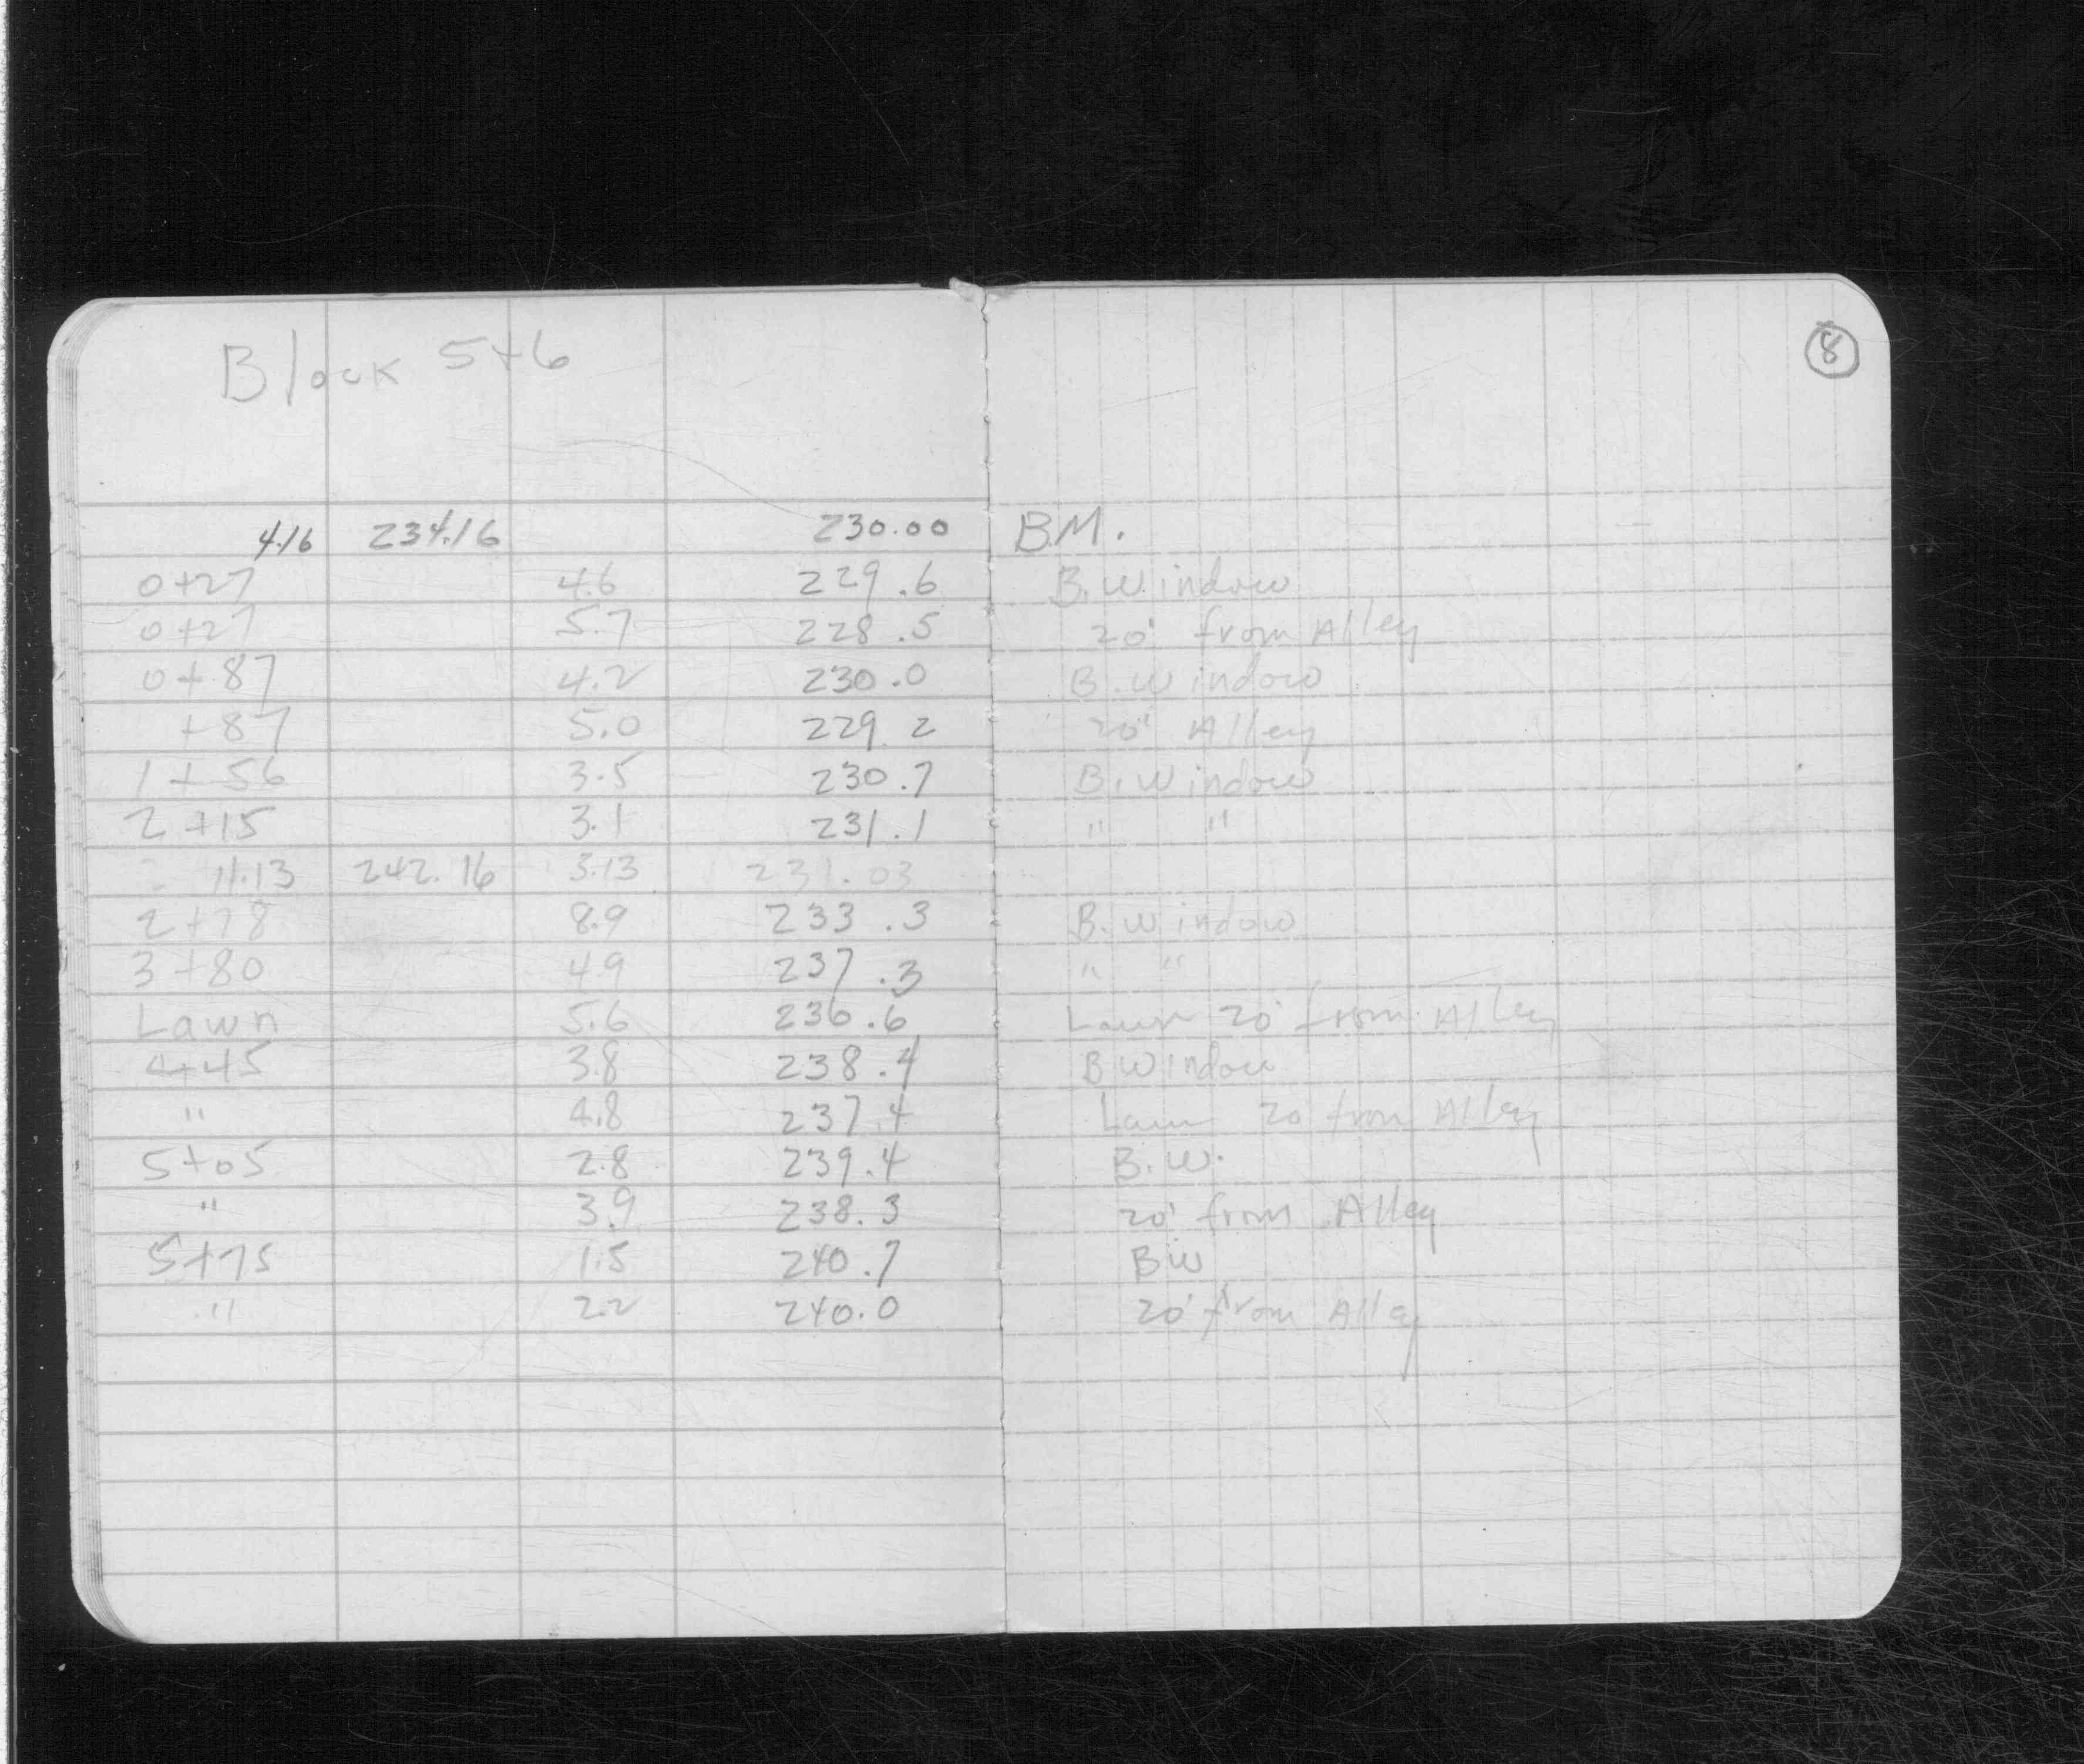 Block 5+6
8
4.16 234.16 230.00 B.M.
0+27 4.6 229.6 B. Window
0+27 5.7 228.5 20' from Alley
0+87 4.2 230.0 B. Window
+87 5.0 229 2 20' Alley
1+56 3.5 230.7 B. Window
2+15 3.1 231.1 " "
11.13 242.16 3.13 231.03
2+78 8.9 233.3 B. Window
3+80 4.9 237.3 " "
Lawn 5.6 236.6 Lawn 20' from Alley
4+45 3.8 238.4 B Window
" 4.8 237.4 Lawn 20' from Alley
5+05 2.8 239.4 B.W.
" 3.9 238.3 20' from Alley
5+75 1.5 240.7 BW
" 2.2 240.0 20' from Alley